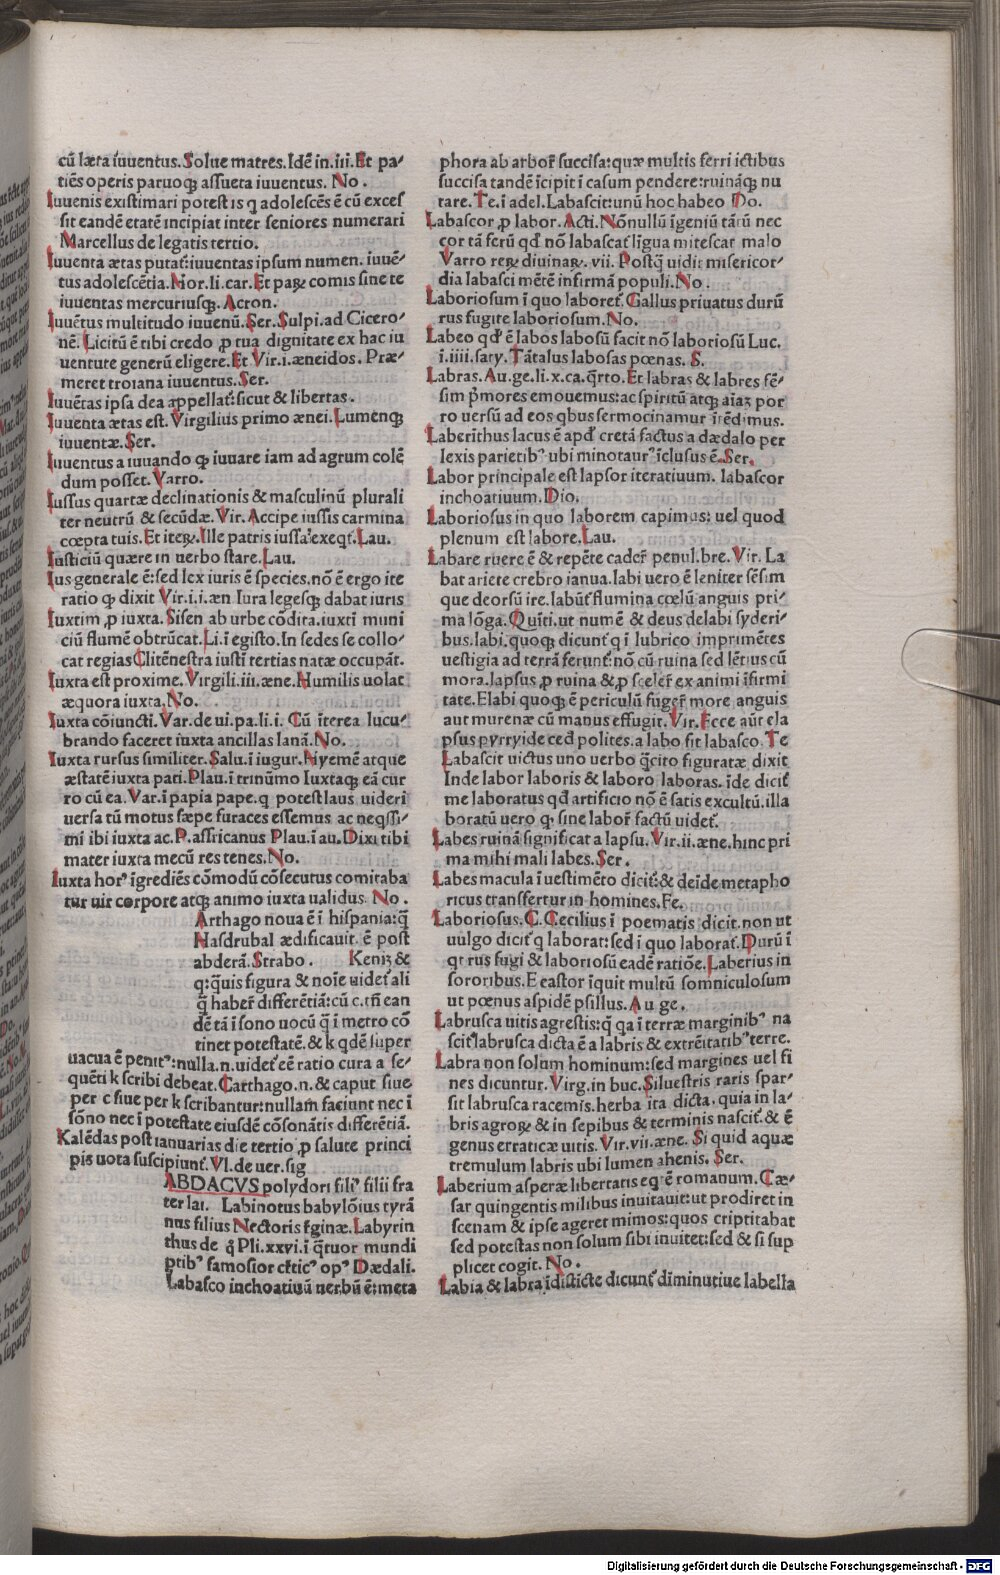 cū læta iuuentus. Solue matres. Idē in .iii. Et pa⸗
tiēs operis paruoqꝫ assueta iuuentus. No.
Iuuenis existimari potest is q adolescēs ē cū exces
sit eandē etatē incipiat inter seniores numerari
Marcellus de legatis tertio.
Iuuenta ætas putat᷑: iuuentas ipsum numen. iuuē⸗
tus adolescētia. Hor. li. car. Et paꝝ comis sine te
iuuentas mercuriusqꝫ. Acron.
Iuuētus multitudo iuuenū. Ser. Sulpi. ad Cicero⸗
nē. Licitū ē tibi credo ꝓ tua dignitate ex hac iu
uentute generū eligere. Et Vir. i. æneidos. Præ⸗
meret troiana iuuentus. Ser.
Iuuētas ipsa dea appellat᷑: sicut & libertas.
Iuuenta ætas est. Virgilius primo ænei. Lumenqꝫ
iuuentæ. Ser.
Iuuentus a iuuando ꝙ iuuare iam ad agrum colē
dum posset. Varro.
Iussus quartæ declinationis & masculinū plurali
ter neutrū & secūdæ. Vir. Accipe iussis carmina
cœpta tuis. Et iteꝝ. Ille patris iussa exeqt᷑. Lau.
Iusticiū quære in uerbo stare. Lau.
Ius generale ē: sed lex iuris ē species. nō ē ergo ite
ratio ꝙ dixit Vir. i. i. æn Iura legesqꝫ dabat iuris
Iuxtim ꝓ iuxta. Sisen ab urbe cōdita. iuxtī muni
ciū flumē obtrūcat. Li. ī egisto. In sedes se collo⸗
cat regias Clitēnestra iustī tertias natæ occupāt.
Iuxta est proxime. Virgili. iii. æne. Humilis uolat
æquora iuxta. No.
Iuxta cōiuncti. Var. de ui. pa. li. i. Cū īterea lucu⸗
brando faceret iuxta ancillas lanā. No.
Iuxta rursus similiter. Salu. ī iugur. Hyemē atque
æstatē iuxta pati. Plau. ī trinūmo Iuxtaqꝫ eā cur
ro cū ea. Var. ī papia pape. q potest laus uideri
uersa tū motus sæpe furaces essemus ac neqssi⸗
mi ibi iuxta ac. P. affricanus Plau. ī au. Dixi tibi
mater iuxta mecū res tenes. No.
Iuxta horꝰ īgrediēs cōmodū cōsecutus comitaba
tur uir corpore atqꝫ animo iuxta ualidus. No.
Arthago noua ē ī hispania: q̄
Hasdrubal ædificauit. ē post
abderā. Strabo. Keniꝫ &
q: q̄uis figura & noīe uidet᷑ ali
q̄ haber᷑ differētiā: cū c. tn̄ ean
dē tā ī sono uocū q̄ ī metro cō
tinet potestatē. & k qdē super
uacua ē penitꝰ: nulla. n. uidet᷑ eē ratio cur a se⸗
quēti k scribi debeat. Carthago. n. & caput siue
per c siue per k scribantur: nullam faciunt nec ī
sōno nec ī potestate eiusdē cōsonātis differētiā.
Kalēdas post ianuarias die tertio ꝓ salute princi
pis uota suscipiunt᷑. Vl. de uer. sig
ABDACVS polydori filiꝰ filii fra
ter lai. Labinotus babylōius tyrā
nus filius Nectoris r̄ginæ. Labyrin
thus de q̊ Pli. xxvi. ī q̄tuor mundi
ptibꝰ famosior cr̄ticꝰ opꝰ Dædali.
Labasco inchoatiuū uerbū ē: meta
phora ab arbor᷑ succisa: quæ multis ferri ictibus
succisa tandē īcipit ī casum pendere: ruināqꝫ nu
tare. Te. ī adel. Labascit: unū hoc habeo Do.
Labascor ꝓ labor. Acti. Nōnullū īgeniū tātū nec
cor tā ferū qd᷑ nō labascat līgua mitescat malo
Varro reꝝ diuinaꝝ. vii. Postq̄ uidit misericor⸗
dia labasci mētē infirmā populi. No.
Laboriosum ī quo laboret᷑. Gallus priuatus durū
rus fugite laboriosum. No.
Labeo qd᷑ ē labos labosū facit nō laboriosū Luc.
i. iiii. saty. Tātalus labosas pœnas. S.
Labras. Au. ge. li. x. ca. q̄rto. Et labras & labres sē⸗
sim pmores emouemus: ac spiritū atqꝫ aiaꝫ por
ro uersū ad eos qbus sermocinamur ītēdimus.
Laberīthus lacus ē apd᷑ cretā factus a dædalo per
lexis parietibꝰ ubi minotaurꝰ īclusus ē. Ser.
Labor principale est lapsor iteratiuum. labascor
inchoatiuum. Dio.
Laboriosus in quo laborem capimus: uel quod
plenum est labore. Lau.
Labare ruere ē & repēte cader᷑ penul. bre. Vir. La
bat ariete crebro ianua. labi uero ē leniter sēsim
que deorsū ire. labūt᷑ flumina cœlū anguis pri⸗
ma lōga. Quīti. ut numē & deus delabi syderi⸗
bus. labi. quoqꝫ dicunt᷑ q ī lubrico imprimētes
uestigia ad terrā ferunt᷑: nō cū ruina sed lētius cū
mora. lapsus ꝓ ruina & ꝓ sceler᷑ ex animi īfirmi
tate. Elabi quoqꝫ ē periculū fuger᷑ more anguis
aut murenæ cū manus effugit. Vir. Ecce aūt ela
psus pyrryide ced᷑ polites. a labo fit labasco. Te
Labascit uictus uno uerbo q̄cito figuratæ dixit
Inde labor laboris & laboro laboras. īde dicit᷑
me laboratus qd᷑ artificio nō ē satis excultū. illa
boratū uero ꝙ sine labor᷑ factū uidet᷑.
Labes ruinā significat a lapsu. Vir. ii. æne. hinc pri
ma mihi mali labes. Ser.
Labes macula ī uestimēto dicit᷑: & deīde metapho
ricus transfertur in homines. Fe.
Laboriosus. C. Cecilius ī poematis dicit. non ut
uulgo dicit᷑ q laborat: sed ī quo laborat᷑. Durū ī
qt rus fugi & laboriosū eadē ratiōe. Laberius in
sororibus. E castor īquit multū somniculosum
ut pœnus aspidē psillus. Au ge.
Labrusca uitis agrestis: q̄ qa ī terræ marginibꝰ na
scit᷑ labrusca dicta ē a labris & extrēitatibꝰ terre.
Labra non solum hominum: sed margines uel fi
nes dicuntur. Virg. in buc. Siluestris raris spar⸗
sit labrusca racemis. herba ita dicta. quia in la⸗
bris agroꝝ & in sepibus & terminis nascit᷑. & ē
genus erraticæ uitis. Vir. vii. æne. Si quid aquæ
tremulum labris ubi lumen ahenis. Ser.
Laberium asperæ libertatis eqtē romanum. Cæ⸗
sar quingentis milibus inuitauit: ut prodiret in
scenam & ipse ageret mimos: quos criptitabat
sed potestas non solum sibi inuitet: sed & si sup
plicet cogit. No.
Labia & labra īdisticte dicunt᷑ diminutiue labella
Digitalisierung gefördert durch die Deutsche Forschungsgemeinschaft - DFG